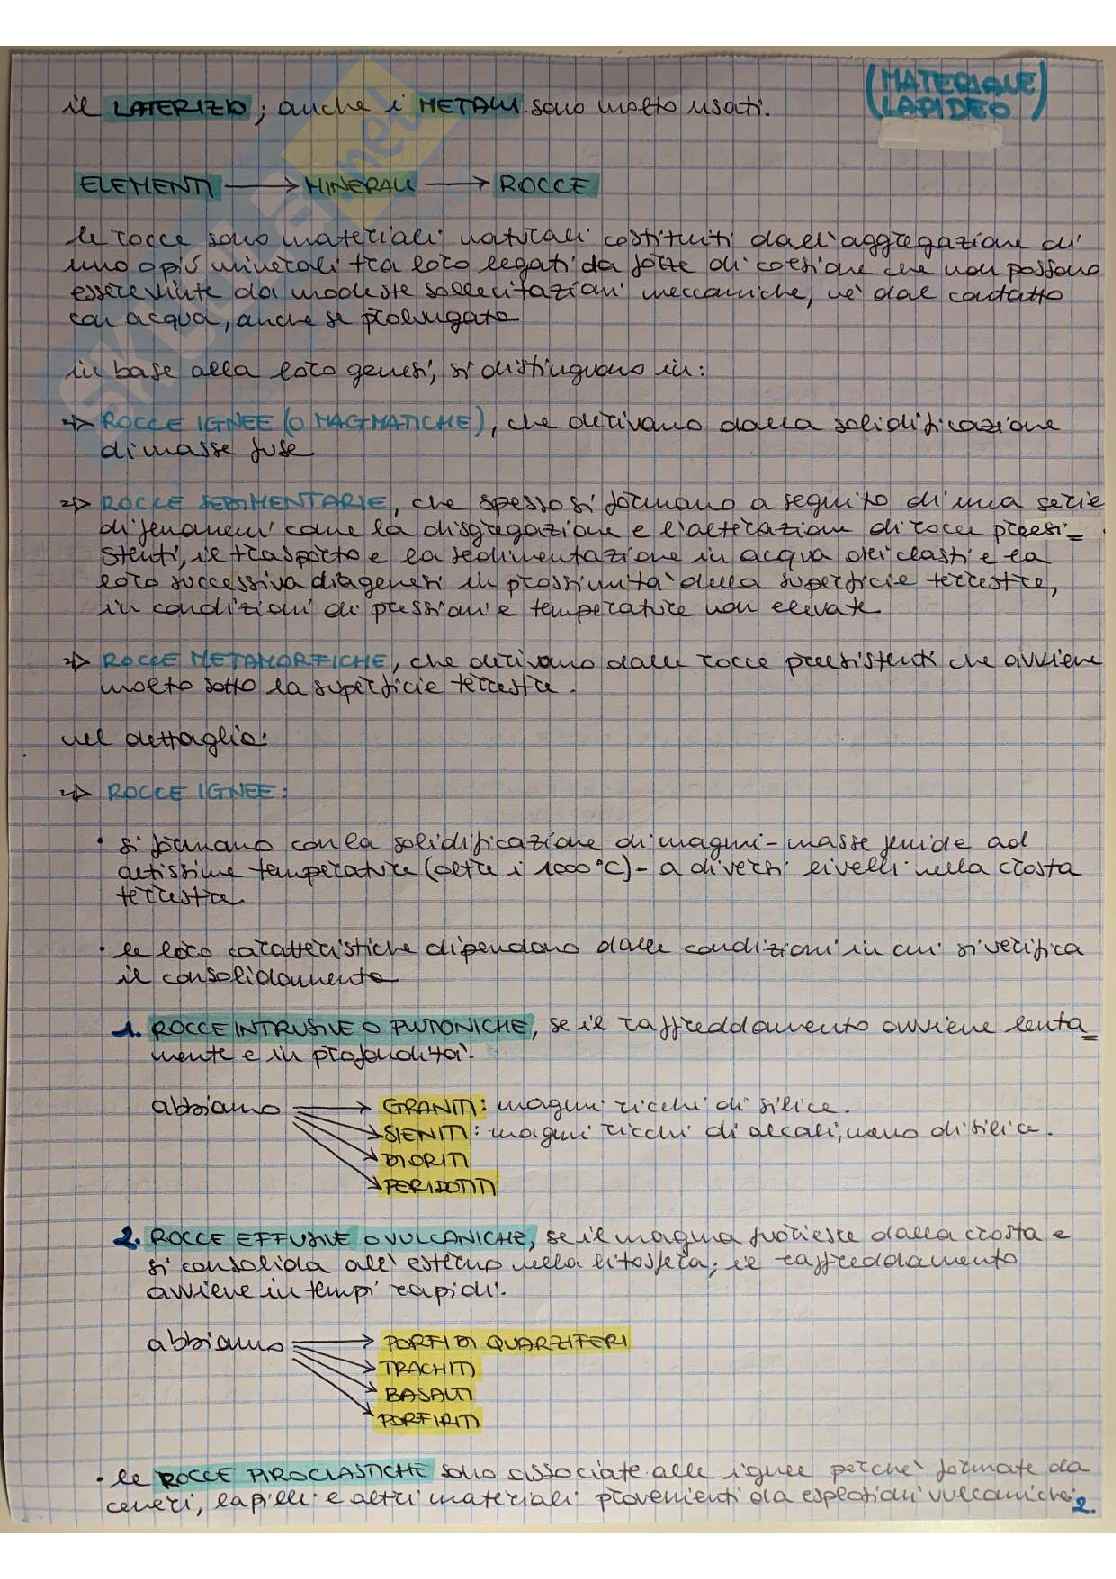 (MATERIALE
LAPIDEO)
il LATERIZIO; anche i METALLI sono molto usati.
ELEMENTI → MINERALI → ROCCE
le rocce sono materiali naturali costituiti dall'aggregazione di
uno o più minerali tra loro legati da forze di coesione che non possono
essere vinte da modeste sollecitazioni meccaniche, né dal contatto
con acqua, anche se prolungato
in base alla loro genesi, si distinguono in:
→ ROCCE IGNEE (O MAGMATICHE), che derivano dalla solidificazione
di masse fuse
→ ROCCE SEDIMENTARIE, che spesso si formano a seguito di una serie
di fenomeni come la disgregazione e l'alterazione di rocce preesi=
stenti, il trasporto e la sedimentazione in acqua dei clasti e la
loro successiva diagenesi in prossimità della superficie terrestre,
in condizioni di pressioni e temperature non elevate
→ ROCCE METAMORFICHE, che derivano dalle rocce preesistenti che avviene
molto sotto la superficie terrestre.
nel dettaglio:
→ ROCCE IGNEE:
• si formano con la solidificazione di magmi - masse fluide ad
altissime temperature (oltre i 1000 °C) - a diversi livelli nella crosta
terrestre.
• le loro caratteristiche dipendono dalle condizioni in cui si verifica
il consolidamento
1. ROCCE INTRUSIVE O PLUTONICHE, se il raffreddamento avviene lenta=
mente e in profondità.
abbiamo → GRANITI: magmi ricchi di silice.
→ SIENITI: magmi ricchi di alcali, meno di silice.
→ DIORITI
→ PERIDOTITI
2. ROCCE EFFUSIVE O VULCANICHE, se il magma fuoriesce dalla crosta e
si consolida all'esterno nella litosfera; il raffreddamento
avviene in tempi rapidi.
abbiamo → PORFIDI QUARZIFERI
→ TRACHITI
→ BASALTI
→ PORFIRITI
• le ROCCE PIROCLASTICHE sono associate alle ignee perché formate da
ceneri, lapilli e altri materiali provenienti da esplosioni vulcaniche.
2.